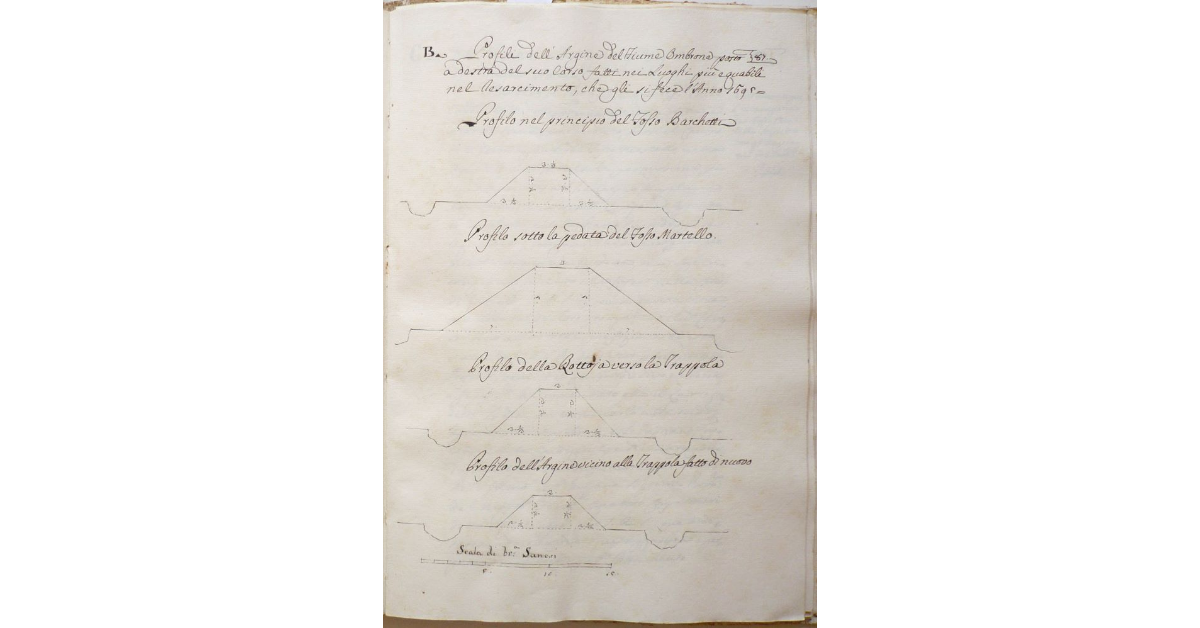 B. Profili dell'Argine del Fiume Ombrone posto 87
a destra del suo Corso fatti nei Luoghi più equabili
nel Resarcimento, che gli si fece l'Anno 1695=
Profilo nel principio del Fosso Barchetti
Profilo sotto la pedata del Fosso Martello.
Profilo della Rottoja verso la Trappola
Profilo dell'Argine vicino alla Trappola fatto di nuovo
Scala di Sanesi
5. 10